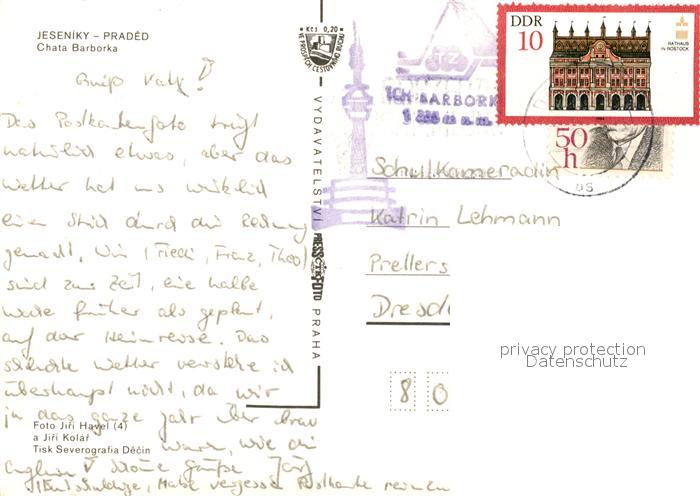 JESENÍKY – PRADĚD
Chata Barborka
Kčs 0,20
VE PROSPĚCH CESTOVNÍHO RUCHU
Gruß
Das Postkartenfoto trügt
natürlich etwas, aber das
Wetter hat uns wirklich
einen Strich durch die Rechnung
gemacht. Wir (Fiedi, Franz, Theo)
sind zur Zeit, eine halbe
Woche früher als geplant,
auf der Heimreise. Das
schlechte Wetter verstehe ich
überhaupt nicht, da wir
ja das ganze Jahr über brav
waren, wie die
Englein Schöne Grüße
(Entschuldige, Habe vergessen Postkarte
Foto Jiří Havel (4)
a Jiří Kolář
Tisk Severografia Děčín
VYDAVATELSTVÍ PRESSFOTO PRAHA
TCH BARBORK
m n.m.
DDR
10
RATHAUS
IN ROSTOCK
1984
50
h
Schulkameradin
Katrin Lehmann
Prellers
Dresd
8 0
privacy protection
Datenschutz